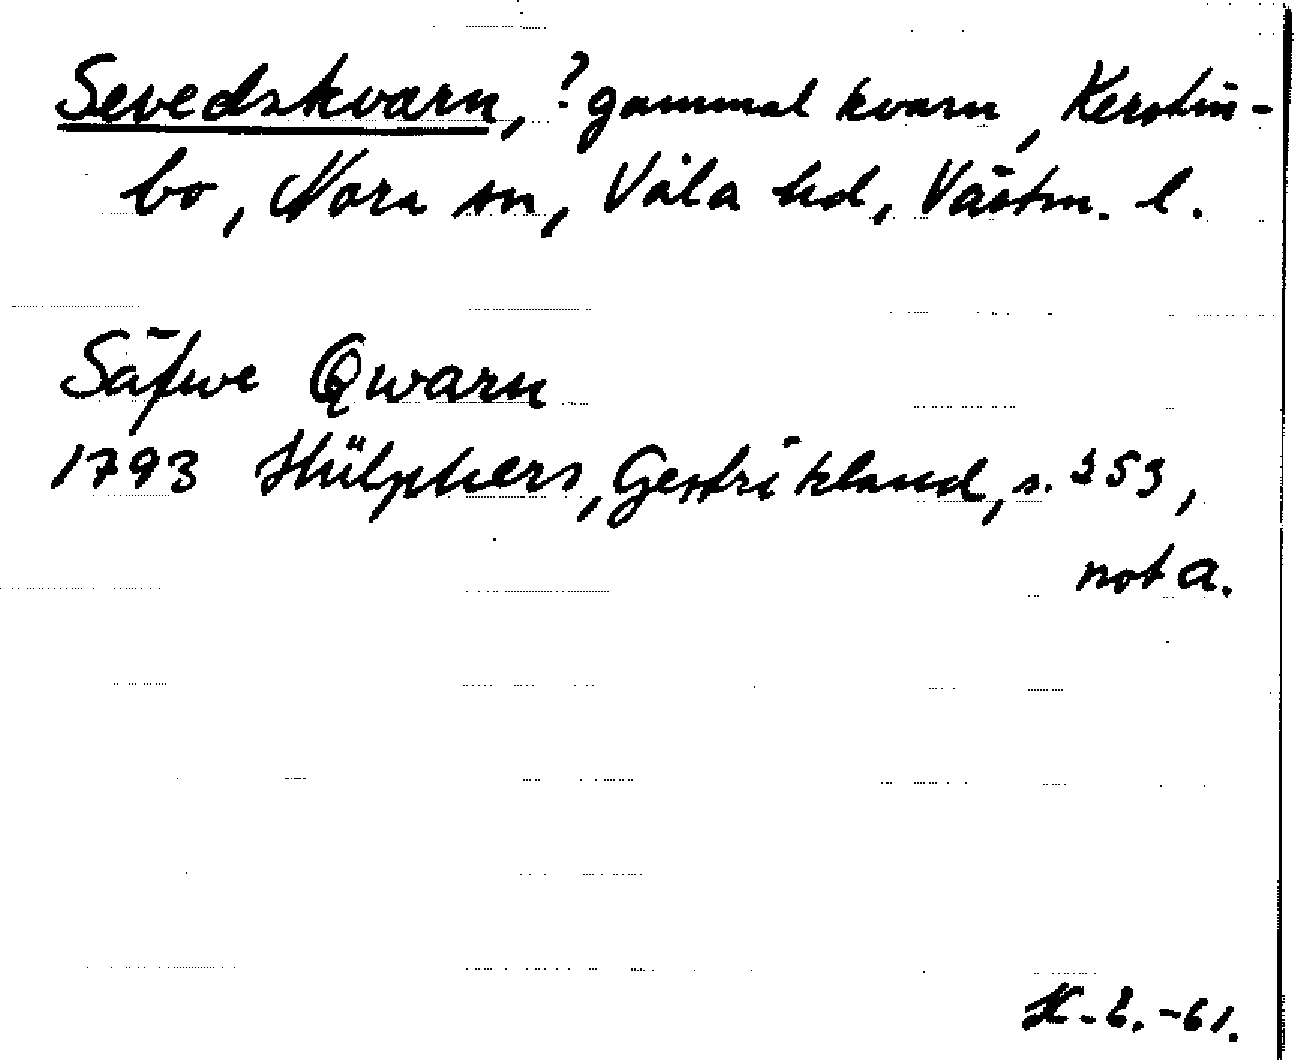 Sevedskvarn, ? gammal kvarn, Kerstin-
bo, Nora sn, Våla hd, Västm. l.
Säfwe Qwarn
1793 Hülphers, Gestrikland, s. 253,
not a.
-61.